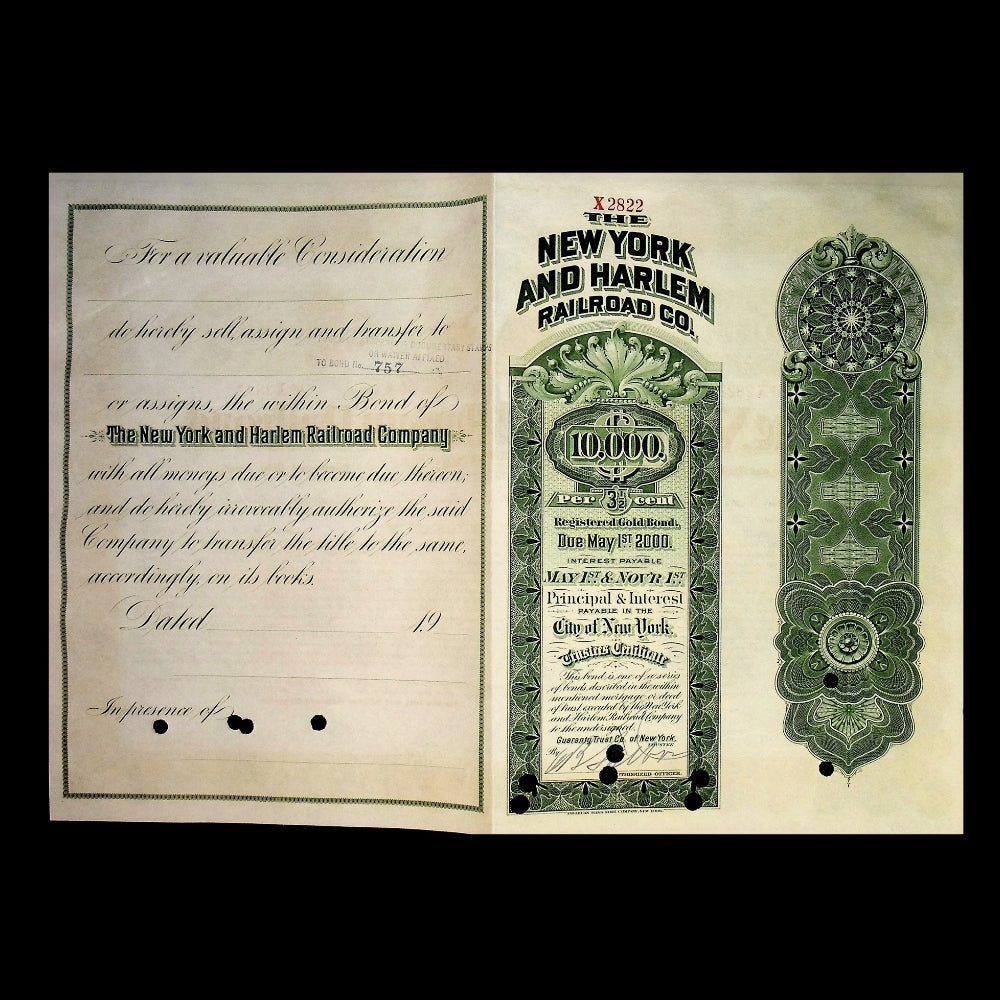 For a valuable Consideration
do hereby sell, assign and transfer to
OR WAIVER AFFIXED
TO BOND No. 757
or assigns, the within Bond of
The New York and Harlem Railroad Company
with all moneys due or to become due thereon;
and do hereby irrevocably authorize the said
Company to transfer the title to the same,
accordingly, on its books.
Dated 19
In presence of
X2822
THE
NEW YORK
AND HARLEM
RAILROAD CO.
$
10,000.
Per 3½ cent
Registered Gold Bond.
Due May 1ST 2000.
INTEREST PAYABLE
MAY 1ST & NOV'R 1ST
Principal & Interest
PAYABLE IN THE
City of New York.
Trustees Certificate
This bond is one of a series
of bonds described in the within
mentioned mortgage or deed
of trust executed by the New York
and Harlem Railroad Company
to the undersigned.
Guaranty Trust Co. of New York,
TRUSTEE
By
AUTHORIZED OFFICER.
AMERICAN BANK NOTE COMPANY, NEW YORK.